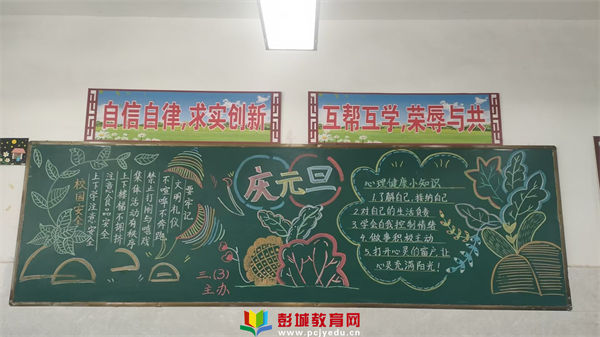 自信自律,求实创新
互帮互学,荣辱与共
校园安全
上下学注意安全
注意食品安全
上下楼梯不拥挤
集体活动有秩序
禁止打闹与嬉戏
不喧哗不奔跑
文明礼仪
要牢记
庆元旦
三.(3)
主办
心理健康小知识
1.了解自己,接纳自己
2.对自己的生活负责
3.学会自我控制情绪
4.做事积极主动
5.打开心灵的窗户,让
心灵充满阳光!
彭城教育网
www.pcjyedu.cn